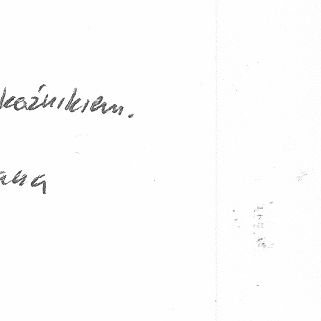 kaźnikiem.
ana